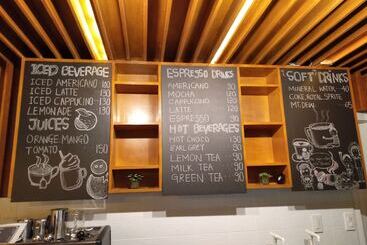 ICED BEVERAGE
ICED AMERICANO 160
ICED LATTE 150
ICED CAPPUCINO 130
LEMONADE 130
JUICES
ORANGE MANGO
TOMATO 150
ESPRESSO DRINKS
AMERICANO 120
MOCHA
CAPPUCCINO
LATTE
ESPRESSO
HOT BEVERAGES
HOT CHOCO 90
EARL GREY 90
LEMON TEA 90
MILK TEA 90
GREEN TEA 90
SOFT DRINKS
MINERAL WATER
COKE, ROYAL
MT. DEW 65